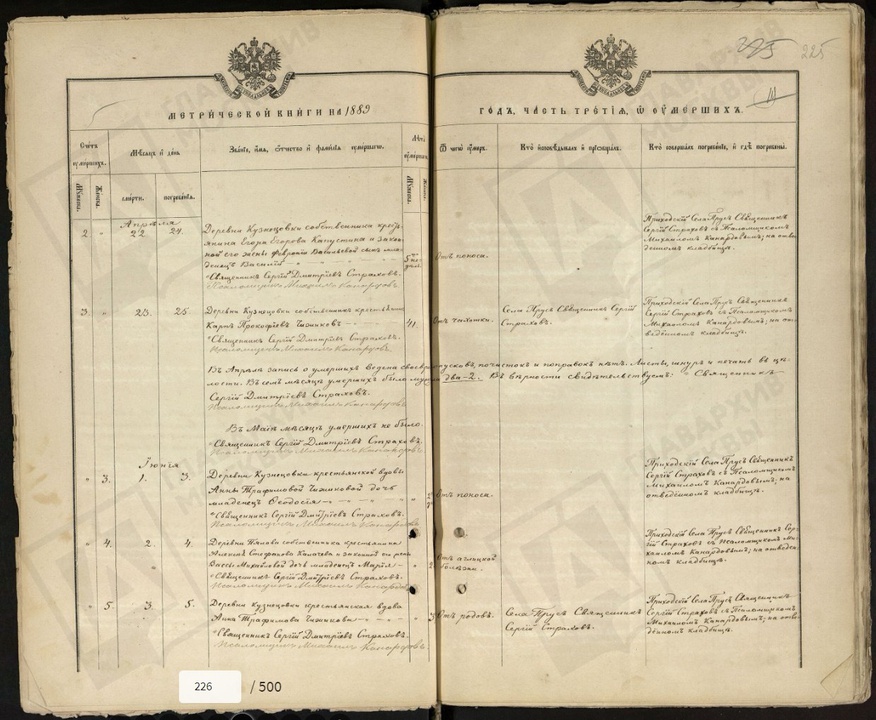 225
225
III
МЕТРИЧЕСКОЙ КНИГИ НА 1889
ГОДЪ, ЧАСТЬ ТРЕТІЯ, Ѿ ОУМЕРШИХЪ.
Счетъ оумершихъ.
Мѣсяцъ и день
Званіе, имя, отчество и фамилія оумершаго.
Лѣта оумершаго
Ѿ чего оумеръ.
Кто исповѣдывалъ и пріобщалъ.
Кто совершалъ погребеніе, и гдѣ погребены.
смерти.
погребенія.
Апрѣля
2 " 22 24.
Деревни Кузнецовки собственника кресть-
янина Егора Егорова Капустина и закон-
ной его жены Февроніи Васильевой сынъ мла-
денецъ Василій
Священникъ Сергій Дмитріевъ Страховъ.
Псаломщикъ Михаилъ Канардовъ
Отъ поноса.
Приходскій Села Прусъ Священникъ
Сергій Страховъ съ Псаломщикомъ
Михаиломъ Канардовымъ; на отве-
денномъ кладбищѣ.
3 " 23. 25.
Деревни Кузнецовки собственникъ крестьянинъ
Карпъ Прокофіевъ Чижиковъ
Священникъ Сергій Дмитріевъ Страховъ.
Псаломщикъ Михаилъ Канардовъ
41.
Отъ чахотки.
Села Прусъ Священникъ Сергій
Страховъ.
Приходскій Села Прусъ Священникъ
Сергій Страховъ съ Псаломщикомъ
Михаиломъ Канардовымъ; на от-
веденномъ кладбищѣ.
Въ Апрѣлѣ запись о умершихъ ведена своевр пусковъ, почистокъ и поправокъ нѣтъ. Листы, шнуръ и печать въ цѣ-
лости. Въ семъ мѣсяцѣ умершихъ было два-2. Въ вѣрности свидѣтельствуемъ. Священникъ
Сергій Дмитріевъ Страховъ.
Псаломщикъ Михаилъ Канардовъ
Въ Маѣ мѣсяцѣ умершихъ не было.
Священникъ Сергій Дмитріевъ Страховъ.
Псаломщикъ Михаилъ Канардовъ
Іюнія
" 3. 1. 3.
Деревни Кузнецовки крестьянской вдовы
Анны Трафиловой Чижиковой дочь
младенецъ Ѳеодосія
Священникъ Сергій Дмитріевъ Страховъ.
Псаломщикъ Михаилъ Канардовъ
Отъ поноса.
Приходскій Села Прусъ Священникъ
Сергій Страховъ съ Псаломщикомъ
Михаиломъ Канардовымъ; на
отведенномъ кладбищѣ.
" 4. 2 4.
Деревни собственника крестьянина
Алексѣя и законной его жены
Михайловой дочь младенецъ Марія
Священникъ Сергій Дмитріевъ Страховъ.
Псаломщикъ Михаилъ Канардовъ
болѣзни.
Приходскій Села Прусъ Священникъ Сер-
гій Страховъ съ Псаломщикомъ Ми-
хаиломъ Канардовымъ; на отведен-
номъ кладбищѣ.
" 5. 3. 5.
Деревни Кузнецовки крестьянская вдова
Анна Трафилова Чижикова
Священникъ Сергій Дмитріевъ Страховъ.
Псаломщикъ Михаилъ Канардовъ
Отъ родовъ.
Села Прусъ Священникъ
Сергій Страховъ.
Приходскій Села Прусъ Священникъ
Сергій Страховъ съ Псаломщикомъ
Михаиломъ Канардовымъ; на отве-
денномъ кладбищѣ.
226 / 500